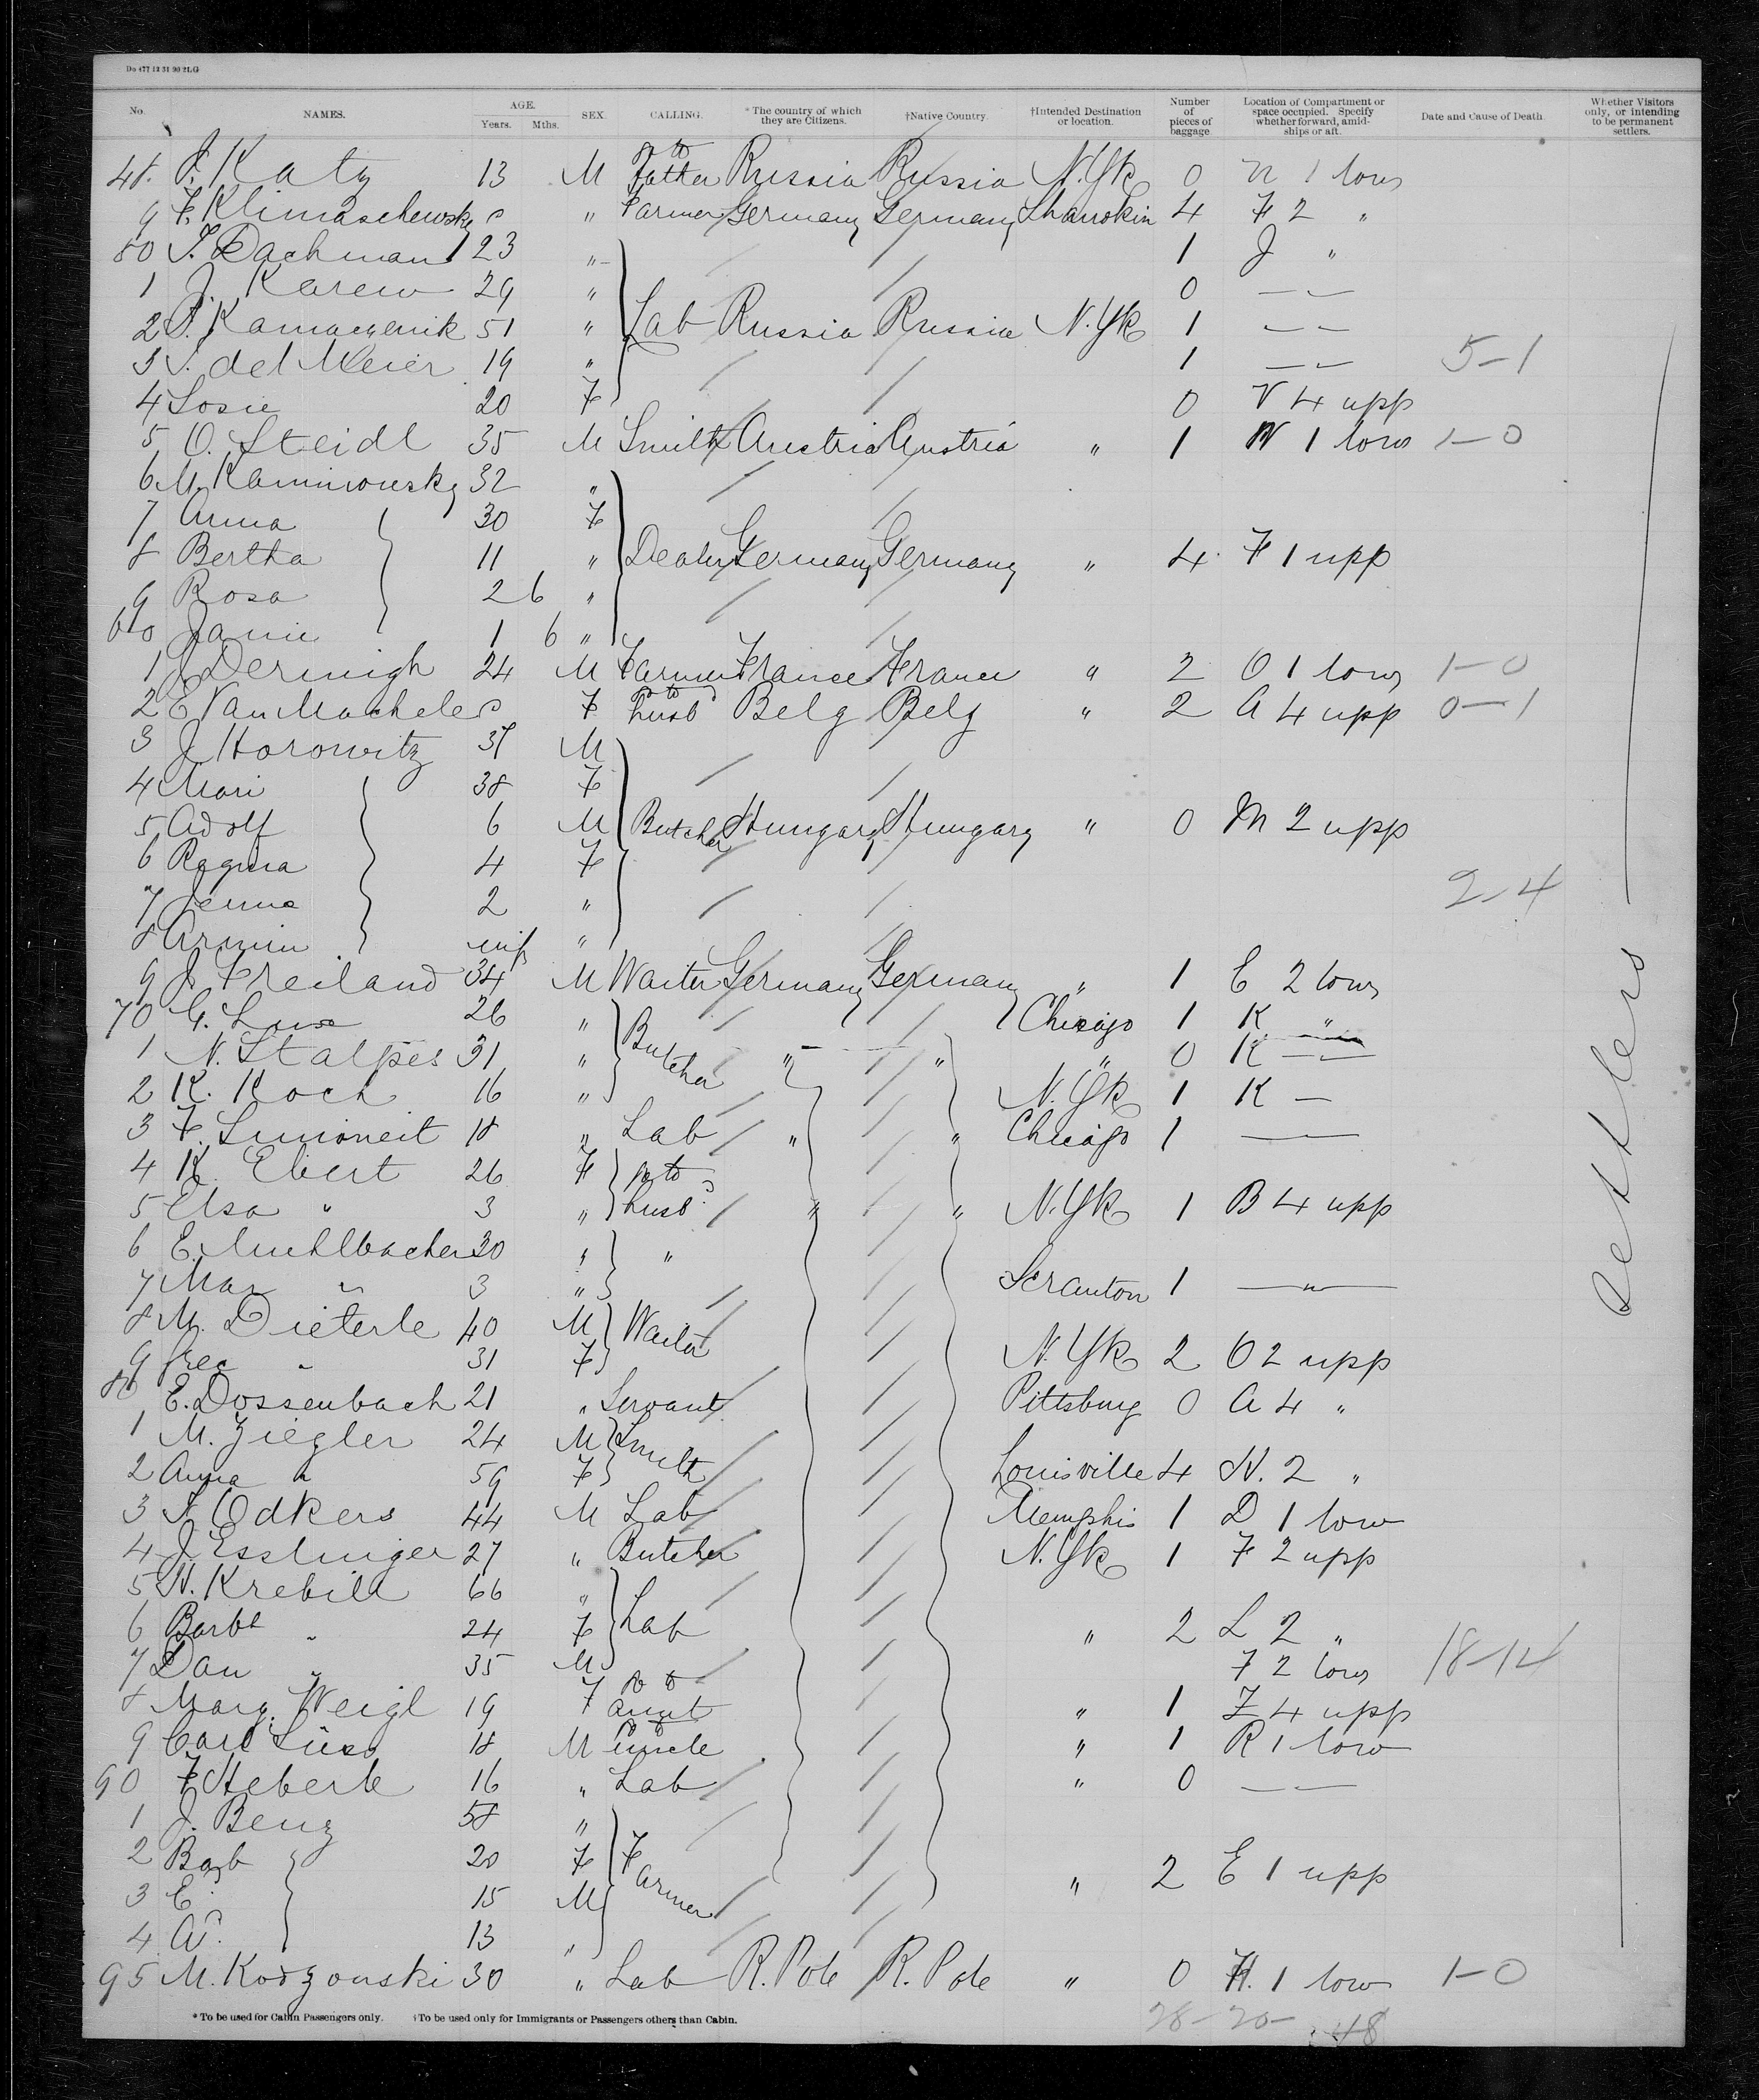 Do 477 12 31 90 2LG
No. NAMES. AGE. Years. Mths. SEX. CALLING. *The country of which they are Citizens. †Native Country. †Intended Destination or location. Number of pieces of baggage Location of Compartment or space occupied. Specify whether forward, amidships or aft. Date and Cause of Death. Whether Visitors only, or intending to be permanent settlers.
48. Katz 13 M to father Russia Russia N.Yk 0 N 1 low
9 F. Klimaschewsky " Farmer Germany Germany Shamokin 4 F 2 "
50 Bachman 23 " 1 J "
1 J. Karew 29 " 0 — " —
2 51 " Lab Russia Russia N.Yk 1 — " —
3 del Meier 19 " 1 — " — 5-1
4 Losie 20 F 0 V 4 upp
5 O. Steidl 35 M Smith Austria Austria " 1 N 1 low 1-0
6 M. Kaminowsky 32 "
7 Anna 30 F
8 Bertha 11 " Dealer Germany Germany " 4 F 1 upp
9 Rosa 2 6 "
60 Janie 1 6 "
1 J Dermigh 24 M Farmer France France " 2 O 1 low 1-0
2 E Van Machele F to husb Belg Belg " 2 A 4 upp 0-1
3 J Horowitz 37 M
4 Mari 38 F
5 Adolf 6 M Butcher Hungary Hungary " 0 M 2 upp
6 Regina 4 F
7 2 " 2-4
8 Armin inf "
9 J. Freiland 34 M Waiter Germany Germany " 1 E 2 low
70 G. 26 " Butcher Chicago 1 K "
1 N. Stalpes 31 " " " " 0 K — " —
2 K. Koch 16 " N.Yk 1 K —
3 F. Simoneit 18 " Lab " " Chicago 1 —
4 K Ebert 26 F to husb
5 Elsa " 3 " " " N.Yk 1 B 4 upp
6 E. Muhlbacher 30 " "
7 Max " 3 " Scranton 1 — " —
8 M. Dieterle 40 M Waiter
9 " 31 F N.Yk 2 O 2 upp
80 E. Dossenbach 21 " Servant Pittsburg 0 A 4 "
1 M. Ziegler 24 M Smith
2 Anna " 59 F Louisville 4 N. 2 "
3 Odkers 44 M Lab Memphis 1 D 1 low
4 J Esslinger 27 " Butcher N.Yk 1 F 2 upp
5 N. Krebill 66 " Lab
6 Barb " 24 F " 2 L 2 "
7 Dan " 35 M F 2 low 18-14
8 Marg. Weigl 19 F to aunt " 1 Z 4 upp
9 Carl 18 M to uncle " 1 R 1 low
90 F Heberle 16 " Lab " 0 — " —
1 J. Benz 58 " Farmer
2 Barb 20 F " 2 E 1 upp
3 E. 15 M
4 A. 13 "
95 M. Korzonski 30 " Lab R. Pole R. Pole " 0 H. 1 low 1-0
settlers
*To be used for Cabin Passengers only. †To be used only for Immigrants or Passengers others than Cabin.
28-20-
48